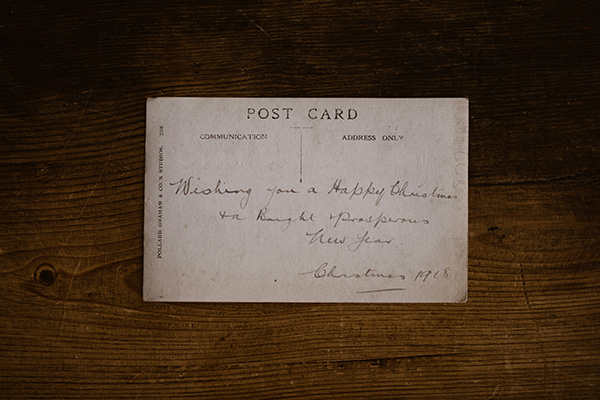 POST CARD
COMMUNICATION
ADDRESS ONLY
POLLARD GRAHAM & CO.'S STUDIOS. 258
Wishing you a Happy Christmas
& a Bright & prosperous
New Year.
Christmas 1918